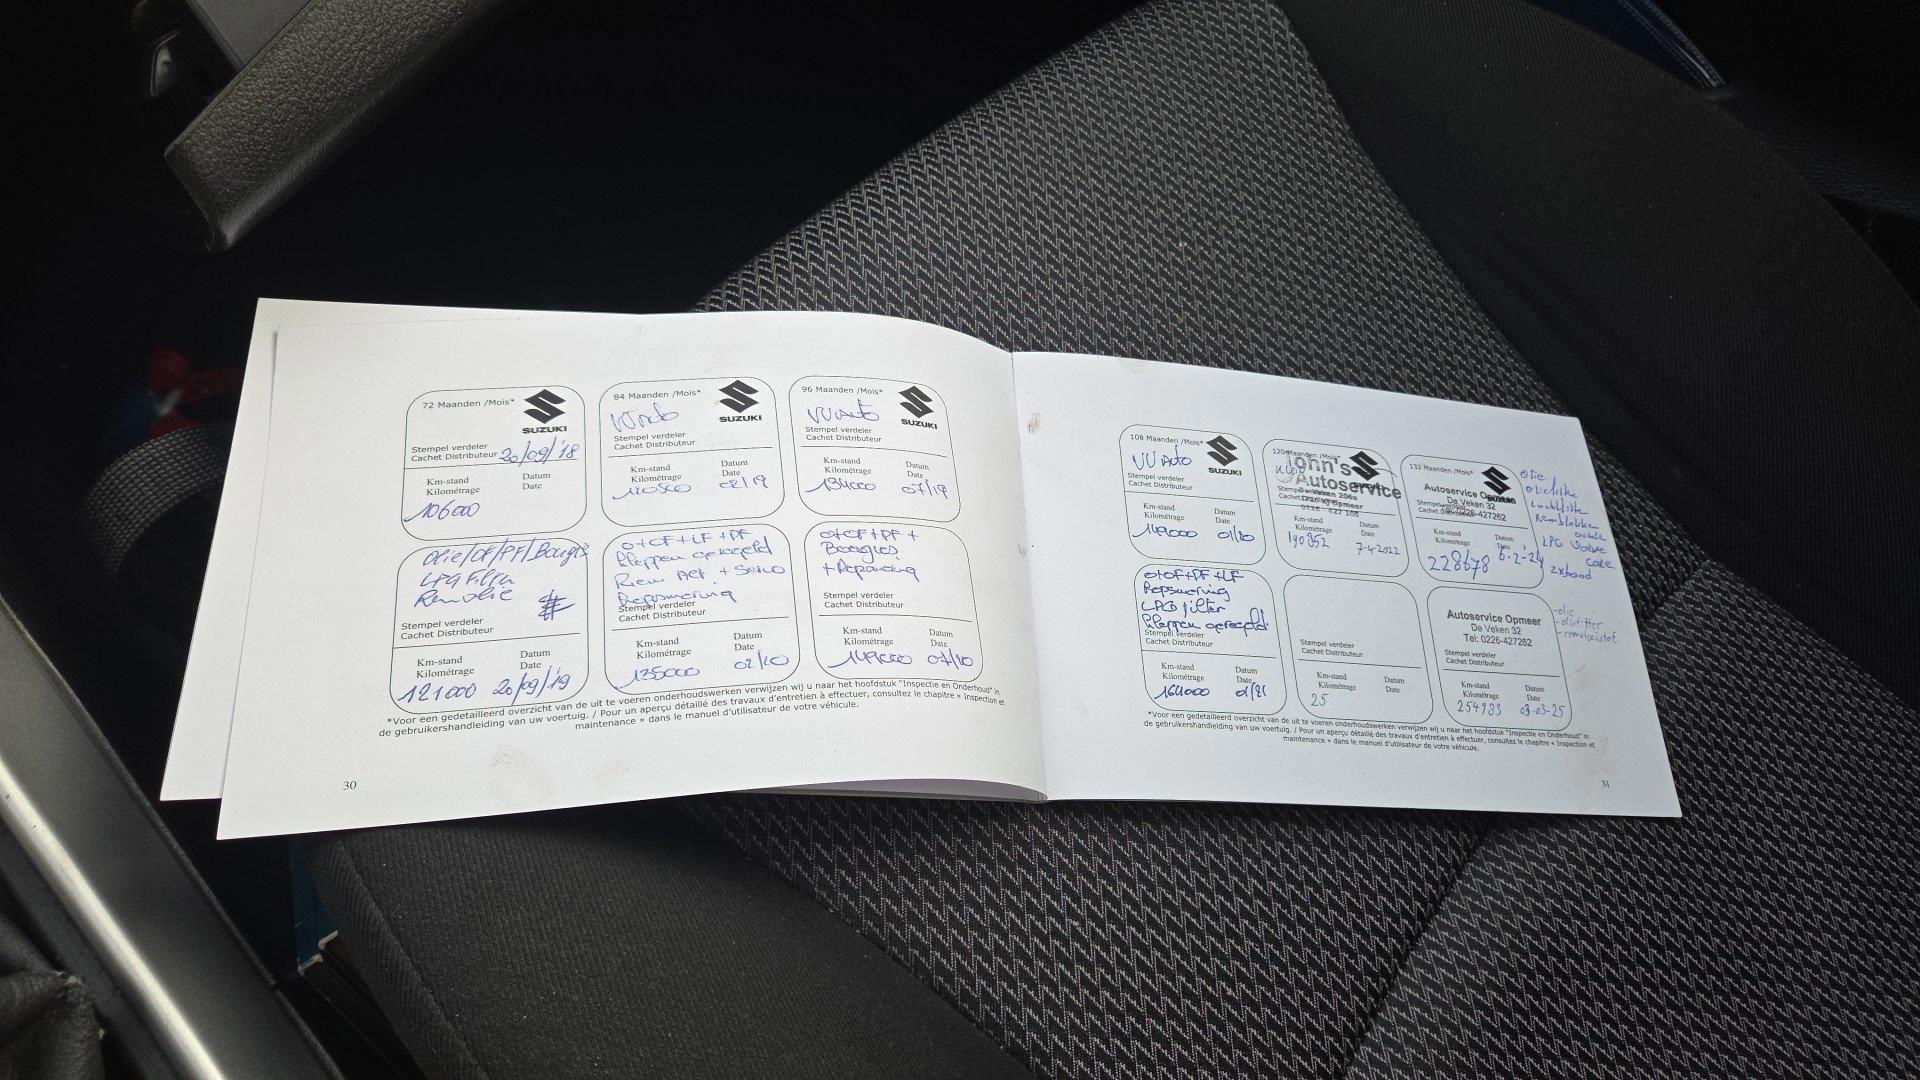 72 Maanden /Mois*
SUZUKI
Stempel verdeler
Cachet Distributeur
20/09/'18
Km-stand
Kilométrage
Datum
Date
106000
84 Maanden /Mois*
SUZUKI
Stempel verdeler
Cachet Distributeur
Km-stand
Kilométrage
Datum
Date
120500
02/19
96 Maanden /Mois*
VV Auto
SUZUKI
Stempel verdeler
Cachet Distributeur
Km-stand
Kilométrage
Datum
Date
134000
07/19
Olie/OF/PF/Bougis
LPG Filtri
Remolie
Stempel verdeler
Cachet Distributeur
Km-stand
Kilométrage
Datum
Date
121000
20/09/19
O+OF+LF+PF
kleppen geregeld
Stempel verdeler
Cachet Distributeur
Km-stand
Kilométrage
Datum
Date
135000
02/20
O+OF+PF+
Bougies
Stempel verdeler
Cachet Distributeur
Km-stand
Kilométrage
Datum
Date
149000
07/20
*Voor een gedetailleerd overzicht van de uit te voeren onderhoudswerken verwijzen wij u naar het hoofdstuk "Inspectie en Onderhoud" in
de gebruikershandleiding van uw voertuig. / Pour un aperçu détaillé des travaux d'entretien à effectuer, consultez le chapitre « Inspection et
maintenance » dans le manuel d'utilisateur de votre véhicule.
30
108 Maanden /Mois*
VV Auto
SUZUKI
Stempel verdeler
Cachet Distributeur
Km-stand
Kilométrage
Datum
Date
149000
01/20
120 Maanden /Mois*
John's
Autoservice
Km-stand
Kilométrage
Datum
Date
190952
7-4-2022
132 Maanden /Mois*
Autoservice Opmeer
De Veken 32
0226-427262
Km-stand
Kilométrage
Datum
228678
6-2-24
olie
oliefilter
luchtfilter
remblokken
2x band
O+OF+PF+LF
LPG filter
kleppen geregeld
Stempel verdeler
Cachet Distributeur
Km-stand
Kilométrage
Datum
Date
164000
01/21
Stempel verdeler
Cachet Distributeur
Km-stand
Kilométrage
Datum
Date
25
Autoservice Opmeer
De Veken 32
Tel: 0226-427262
Stempel verdeler
Cachet Distributeur
Km-stand
Kilométrage
Datum
Date
254983
03-03-25
-olie
-oliefilter
-remvloeistof
*Voor een gedetailleerd overzicht van de uit te voeren onderhoudswerken verwijzen wij u naar het hoofdstuk "Inspectie en Onderhoud" in
de gebruikershandleiding van uw voertuig. / Pour un aperçu détaillé des travaux d'entretien à effectuer, consultez le chapitre « Inspection et
maintenance » dans le manuel d'utilisateur de votre véhicule.
31